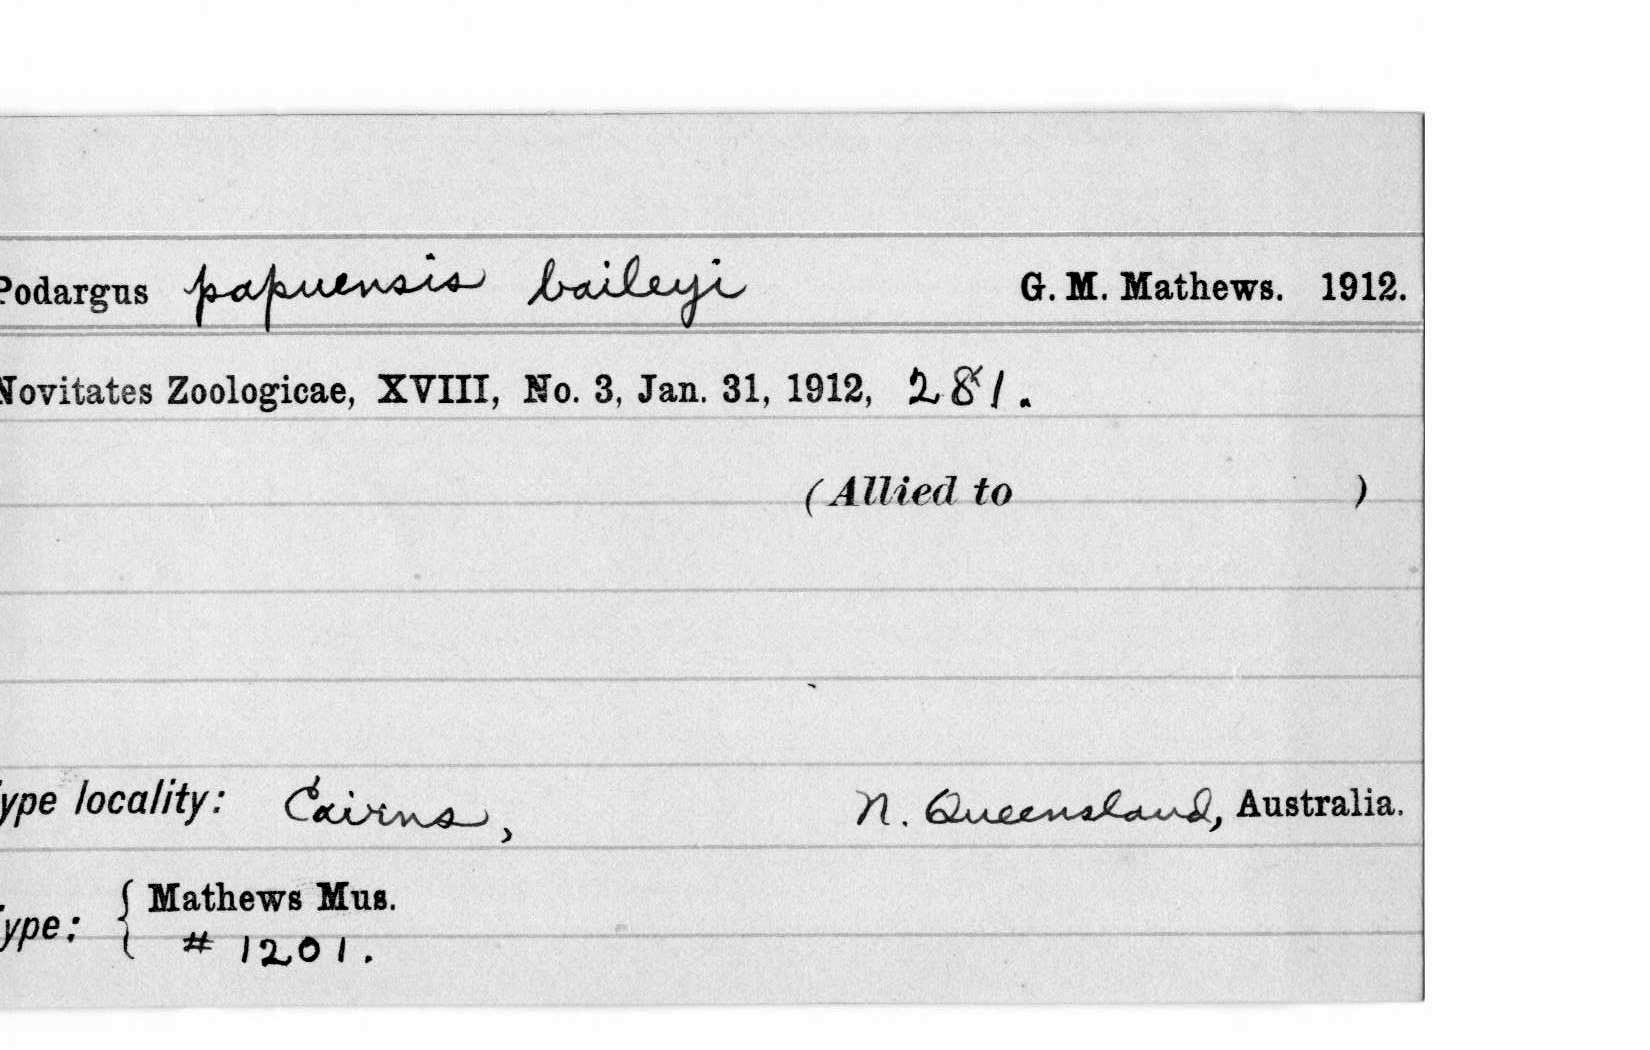 Podargus papuensis baileyi G. M. Mathews. 1912.
Novitates Zoologicae, XVIII, No. 3, Jan. 31, 1912, 281.
(Allied to )
Type locality: Cairns, N. Queensland, Australia.
Type: { Mathews Mus.
# 1201.